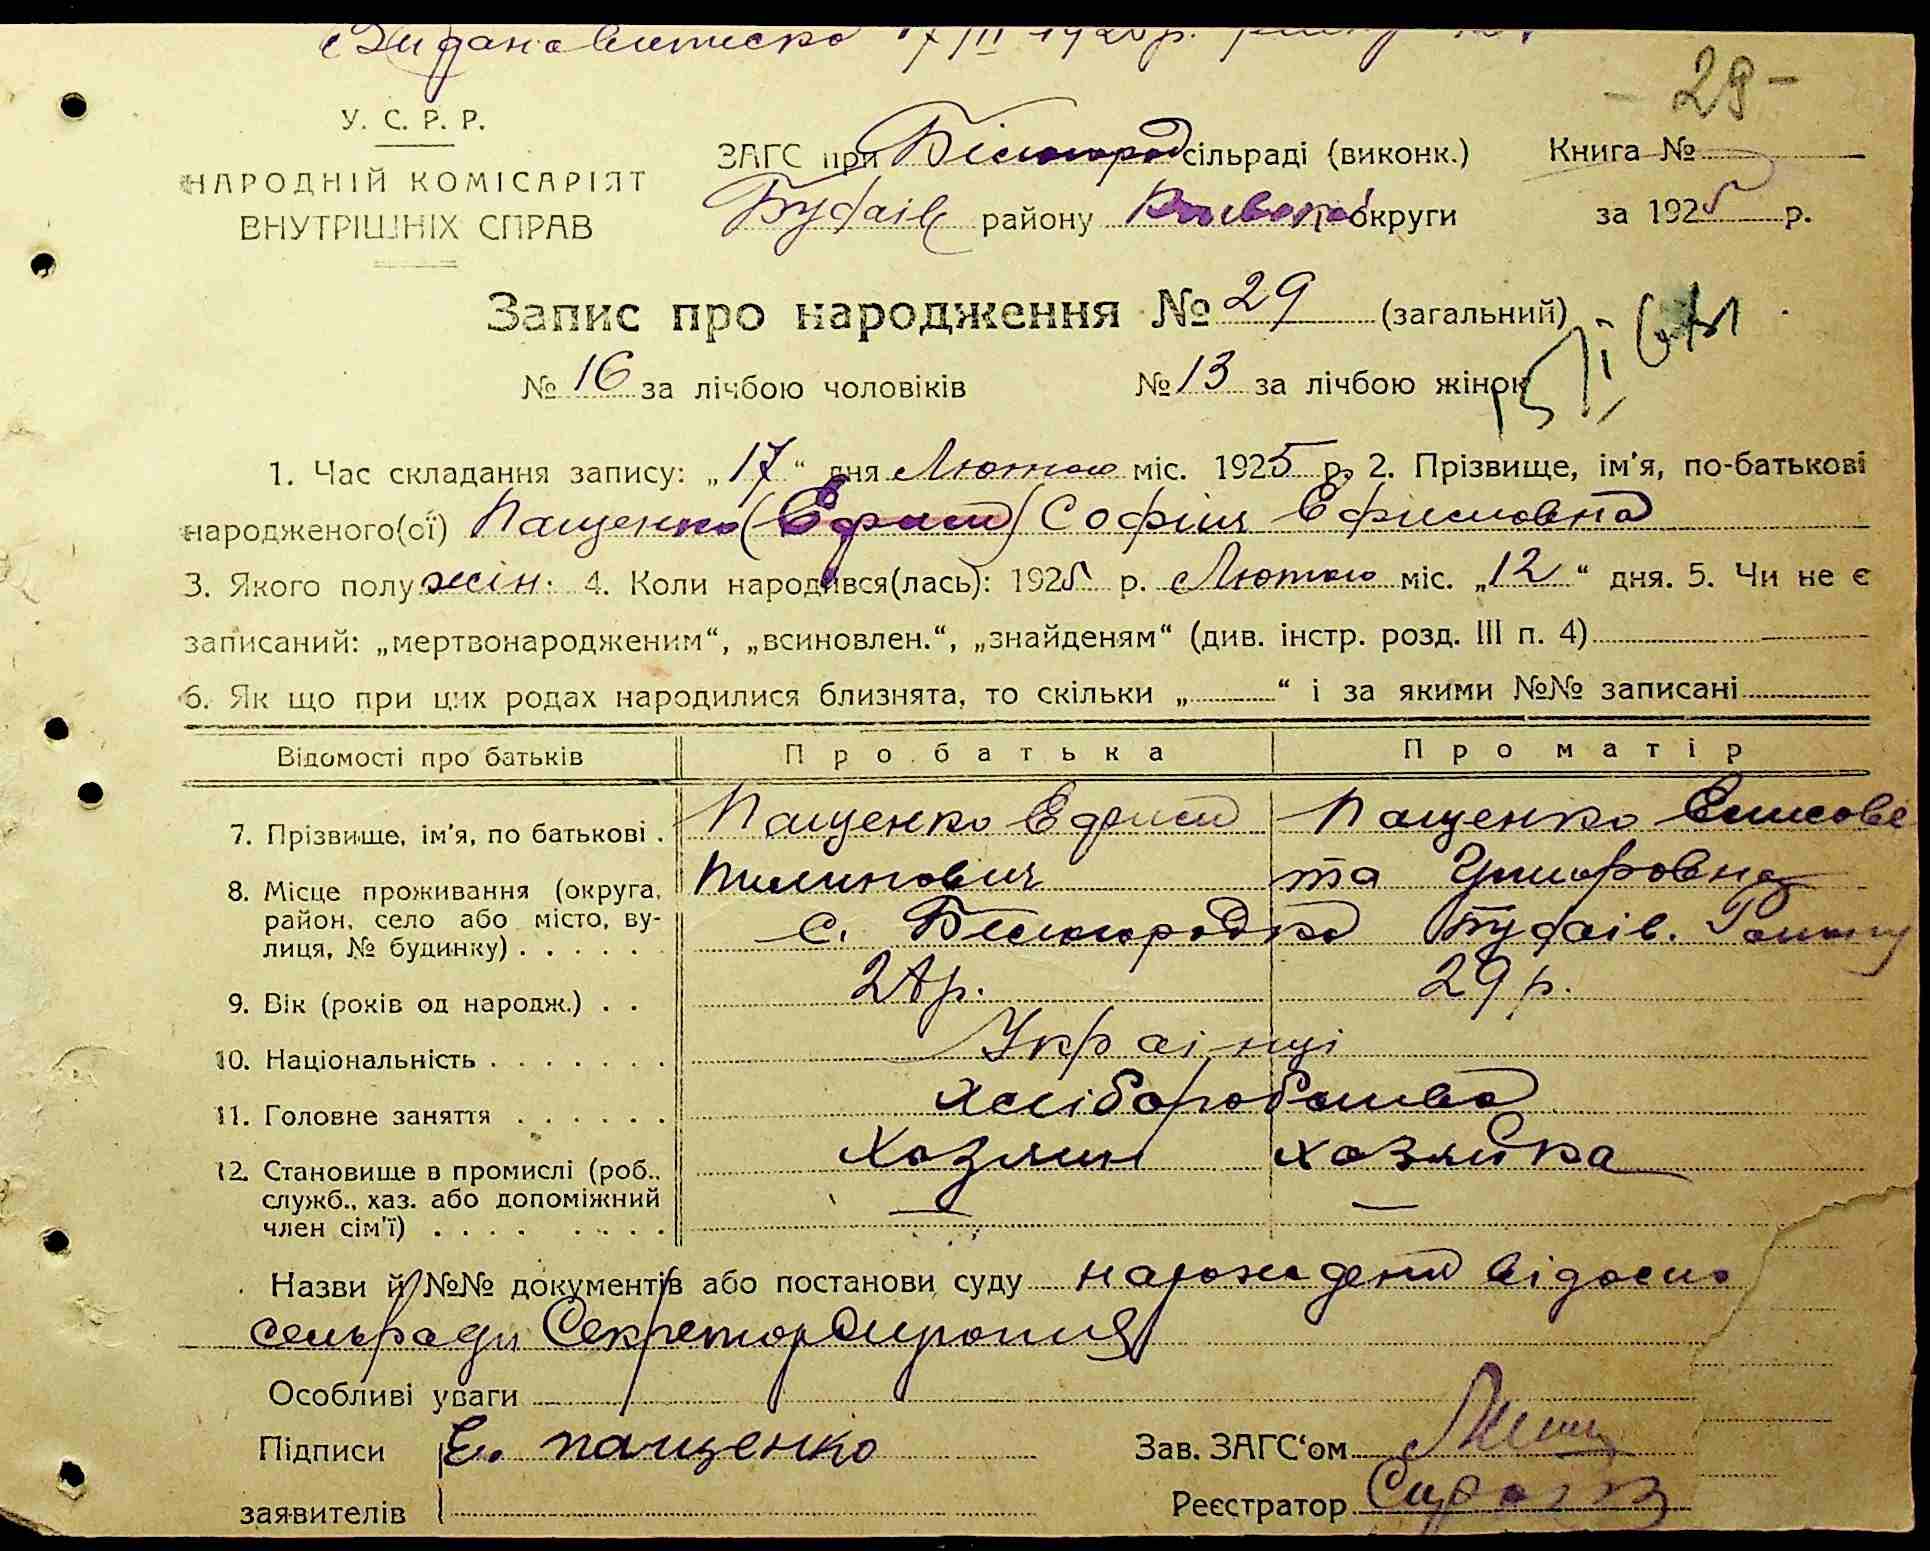 Видана виписка 17/II 192 р.
- 29 -
У. С. Р. Р.
НАРОДНІЙ КОМІСАРІЯТ
ВНУТРІШНІХ СПРАВ
ЗАГС при Білогород сільраді (виконк.)
Будаів району Киівської округи
Книга №
за 1925 р.
Запис про народження № 29 (загальний)
№ 16 за лічбою чоловіків № 13 за лічбою жінок
1. Час складання запису: „17“ дня Лютого міс. 1925 р. 2. Прізвище, ім'я, по-батькові
народженого(ої) Пащенко (Ефим) Софія Ефимовна
3. Якого полу жін. 4. Коли народився(лась): 1925 р. Лютого міс. „12“ дня. 5. Чи не є
записаний: „мертвонародженим“, „всиновлен.“, „знайденям“ (див. інстр. розд. III п. 4)
6. Як що при цих родах народилися близнята, то скільки „ “ і за якими №№ записані
Відомості про батьків Про батька Про матір
7. Прізвище, ім'я, по батькові . Пащенко Ефим Пащенко Елисове
Пилипович та
8. Місце проживання (округа,
район, село або місто, ву-
лиця, № будинку) . . . . . с. Білогородка Будаів. Району
9. Вік (років од народж.) . . 28 р. 29 р.
10. Національність . . . . . . . Украінці
11. Головне заняття . . . . . . Хліборобства
12. Становище в промислі (роб., Хозяин хозяйка
служб., хаз. або допоміжний
член сім'ї) . . . . . . . . — —
Назви й №№ документів або постанови суду народженя відомо
сельради Секретор
Особливі уваги
Підписи Е. Пащенко
заявителів
Зав. ЗАГС‘ом
Реєстратор